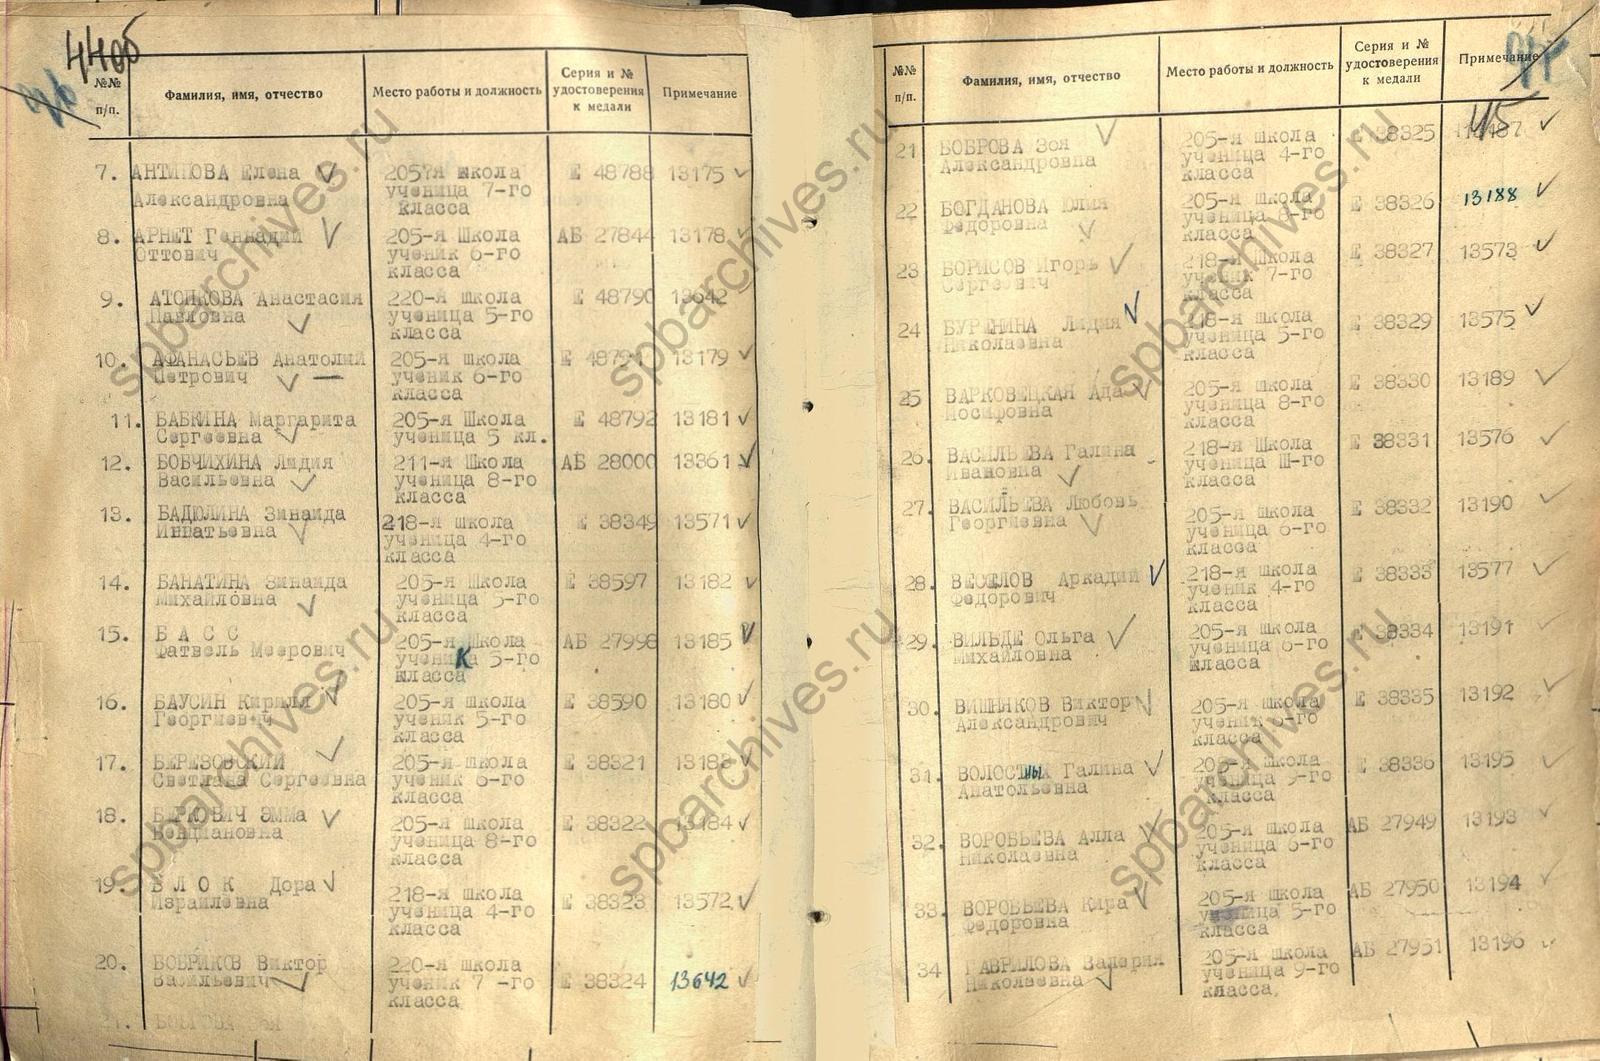 440б
№№ п/п.
Фамилия, имя, отчество
Место работы и должность
Серия и № удостоверения к медали
Примечание
7. АНТИПОВА Елена 205-я школа Е 48788 13175
Александровна ученица 7-го
класса
8. АРНЕТ Геннадий 205-я Школа АБ 27844 13178
Оттович ученик 6-го
класса
9. Анастасия 220-я школа Е 48790 13642
Павловна ученица 5-го
класса
10. АФАНАСЬЕВ Анатолий 205-я школа Е 48791 13179
Петрович ученик 6-го
класса
11. БАБКИНА Маргарита 205-я Школа Е 48792 13181
Сергеевна ученица 5 кл.
12. БОБЧИХИНА Лидия 211-я Школа АБ 28000 13361
Васильевна ученица 8-го
класса
13. БАДЮЛИНА Зинаида 218-я школа Е 38349 13571
Игнатьевна ученица 4-го
класса
14. БАНАТИНА Зинаида 205-я Школа Е 38597 13182
Михайловна ученица 5-го
класса
15. Б А С С 205-я Школа АБ 27998 13185
Меерович ученик 5-го
класса
16. БАУСИН Кирилл 205-я школа Е 38590 13180
Георгиевич ученик 5-го
класса
17. БЕРЕЗОВСКИЙ 205-я школа Е 38321
Светлана Сергеевна ученик 6-го
класса
18. БЕРКОВИЧ Эмма 205-я школа Е 38322 13184
ученица 8-го
класса
19. Б Л О К Дора 218-я школа Е 38323 13572
Израилевна ученица 4-го
класса
20. БОБРИКОВ Виктор 220-я школа Е 38324 13642
Васильевич ученик 7-го
класса
№№ п/п.
Фамилия, имя, отчество
Место работы и должность
Серия и № удостоверения к медали
Примечание
115
21 БОБРОВА Зоя 205-я школа Е 38325
Александровна ученица 4-го
класса
22 БОГДАНОВА Юлия 205-я школа Е 38326 13188
Федоровна ученица 8-го
класса
23 БОРИСОВ Игорь 218-я Школа Е 38327 13573
Сергеевич ученик 7-го
класса
24 БУРЕНИНА Лидия 218-я школа Е 38329 13575
Николаевна ученица 5-го
класса
25 ВАРКОВЕЦКАЯ Ада 205-я школа Е 38330 13189
Иосифовна ученица 8-го
класса
26. ВАСИЛЬЕВА Галина 218-я Школа Е 38331 13576
Ивановна ученица Ш-го
класса
27. ВАСИЛЬЕВА Любовь 205-я школа Е 38332 13190
Георгиевна ученица 6-го
класса
28. ВЕСЕЛОВ Аркадий 218-я школа Е 38333 13577
Федорович ученик 4-го
класса
29. ВИЛЬДЕ Ольга 205-я школа Е 38334 13191
Михайловна ученица 6-го
класса
30. ВИШНЯКОВ Виктор 205-я школа Е 38335 13192
Александрович ученик
класса
31. Галина 205-я школа Е 38336 13195
Анатольевна ученица
класса
32. ВОРОБЬЕВА Алла 205-я школа АБ 27949 13193
Николаевна ученица 6-го
класса
33. ВОРОБЬЕВА Кира 205-я школа АБ 27950 13194
Федоровна ученица 5-го
класса
34 ГАВРИЛОВА Валерия 205-я школа АБ 27951 13196
Николаевна ученица 9-го
класса
spbarchives.ru
spbarchives.ru
spbarchives.ru
spbarchives.ru
spbarchives.ru
spbarchives.ru